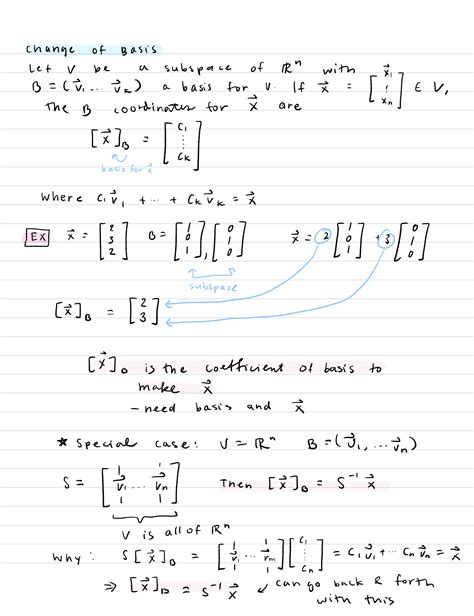 change of Basis
Let V be a subspace of ℝⁿ with
B = (v⃗₁ ... v⃗ₖ) a basis for V. If x⃗ = [x⃗₁ ⋮ xₙ] ∈ V,
the B coordinates for x⃗ are
[x⃗]_B = [c₁ ⋮ cₖ]
basis for x⃗
where c₁v⃗₁ + ... + cₖv⃗ₖ = x⃗
EX x⃗ = [2 3 2] B = [1 0 1], [0 1 0] x⃗ = 2 [1 0 1] + 3 [0 1 0]
subspace
[x⃗]_B = [2 3]
[x⃗]_B is the coefficient of basis to
make x⃗
- need basis and x⃗
* special case: V = ℝⁿ B = (v⃗₁, ... v⃗ₙ)
S = [v⃗₁ ... v⃗ₙ] Then [x⃗]_B = S⁻¹ x⃗
V is all of ℝⁿ
why: S[x⃗]_B = [v⃗₁ ... v⃗ₘ] [c₁ ⋮ cₙ] = c₁v⃗₁ + ... cₙv⃗ₙ = x⃗
⇒ [x⃗]_B = S⁻¹ x⃗ ↙ can go back & forth
with this